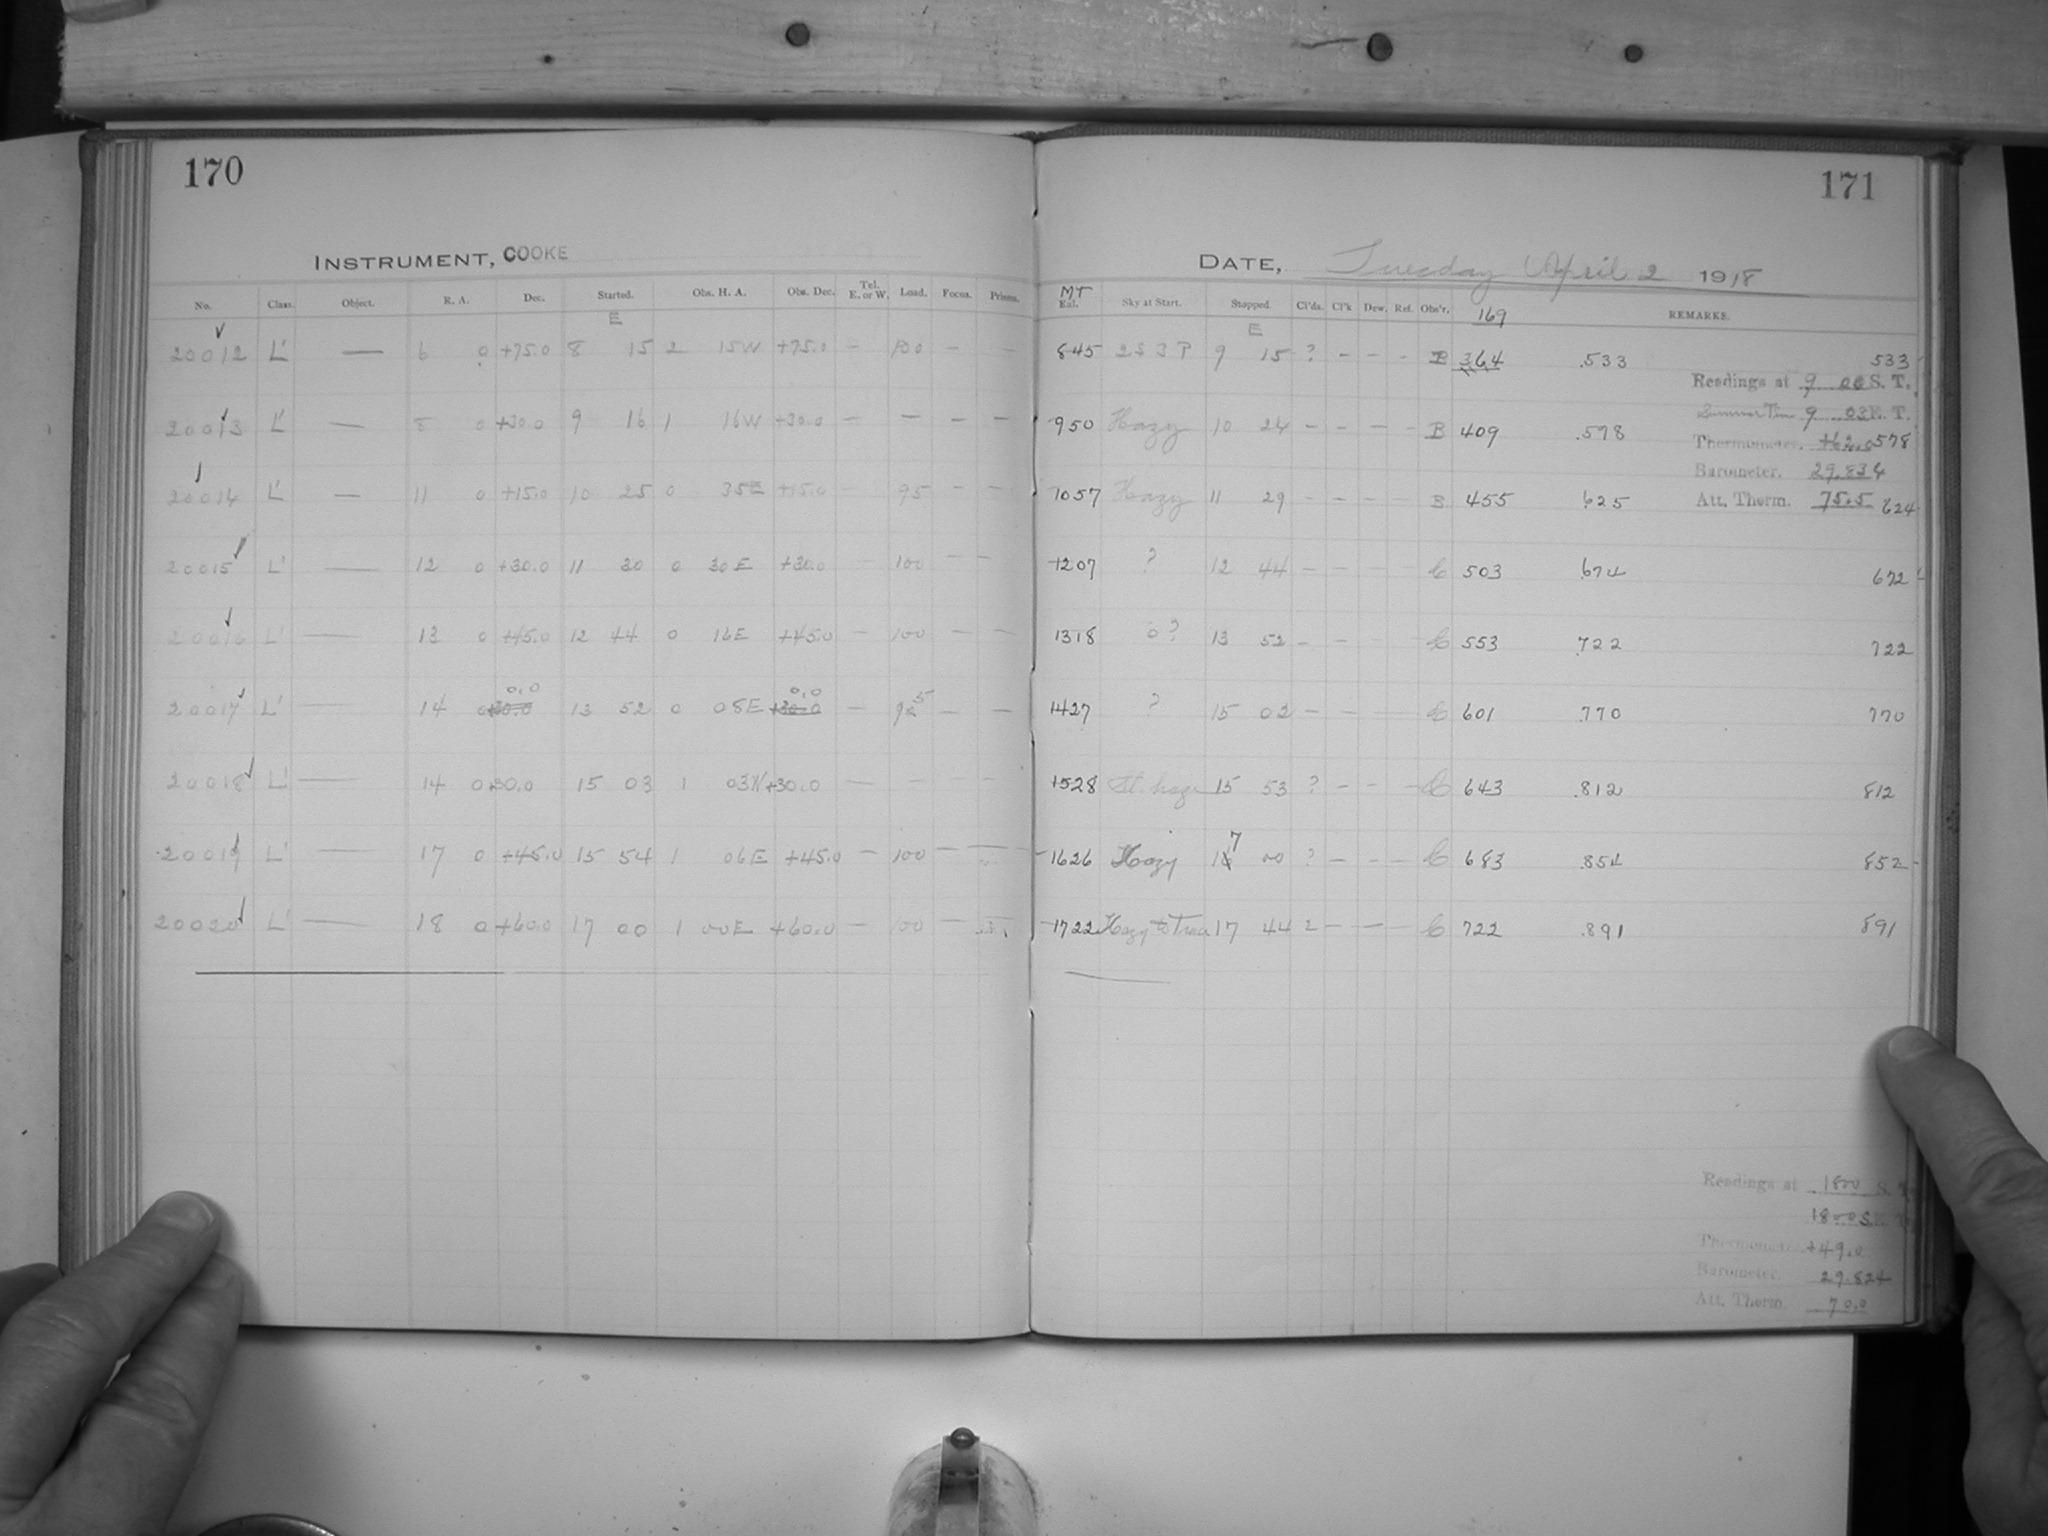 170
INSTRUMENT, COOKE
No. Class. Object. R. A. Dec. Started. Obs. H. A. Obs. Dec. Tel. E. or W. Load. Focus. Prisms.
E
20012 L' — 6 0 +75.0 8 15 2 15W +75.0 — 100 — —
20013 L' — 8 0 +30.0 9 16 1 16W +30.0 — — — —
20014 L' — 11 0 +15.0 10 25 0 35E +15.0 — 95 — —
20015 L' — 12 0 +30.0 11 30 0 30E +30.0 — 100 — —
20016 L' — 13 0 +45.0 12 44 0 16E +45.0 — 100 — —
0.0 0.0
20017 L' — 14 0 +30.0 13 52 0 08E +30.0 — 95 — —
20018 L' — 14 0 +30.0 15 03 1 03W +30.0 — — — —
20019 L' — 17 0 +45.0 15 54 1 06E +45.0 — 100 — —
20020 L' — 18 0 +60.0 17 00 1 00E +60.0 — 100 —
171
DATE, Tuesday April 2 1918
MT
Eal. Sky at Start. Stopped. Cl'ds. Cl'k Dew. Ref. Obs'r. 169 REMARKS.
E
845 2 S 3 P 9 15 ? - - - B 364 .533 533
Readings at 9 00 S. T.
Summer Time 9 03 E. T.
950 Hazy 10 24 - - - - B 409 .578 578
Thermometer.
Barometer. 29.834
1057 Hazy 11 29 - - - - B 455 625 624
Att. Therm. 75.5
1207 ? 12 44 - - - - C 503 .674 672
1318 0? 13 52 - - - - C 553 .722 722
1427 ? 15 02 - - - - C 601 .770 770
1528 Sl. haze 15 53 ? - - - C 643 .812 812
1626 Hazy 17 00 ? - - - C 683 .854 852
1722 Hazy to Trea 17 44 2 - - - C 722 .891 891
Readings at 1800 S. T.
1800 S. T.
Thermometer. +49.0
Barometer. 29.824
Att. Therm. 70.0